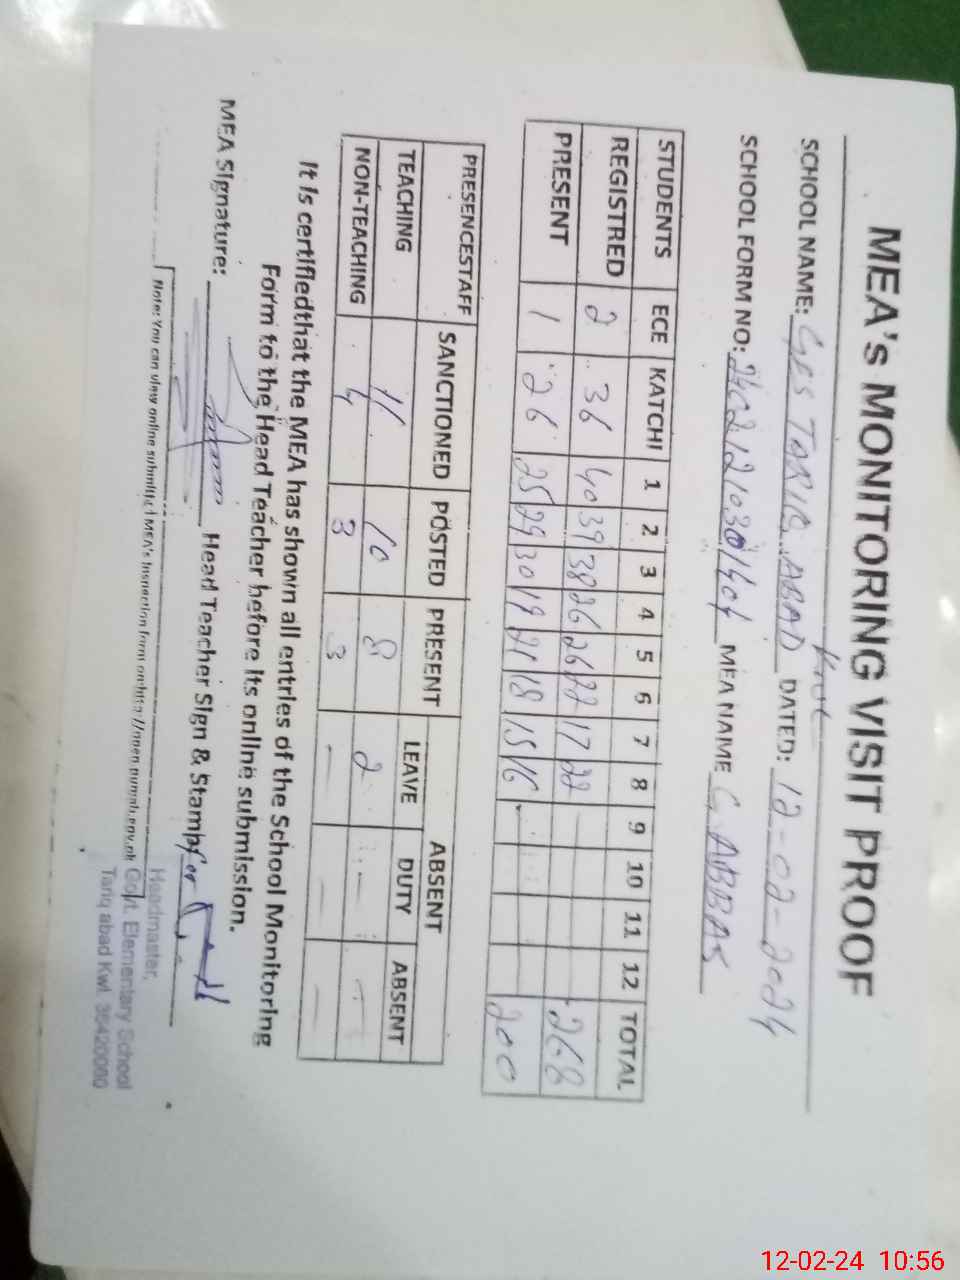 MEA's MONITORING VISIT PROOF
SCHOOL NAME: GES TARIQ ABAD DATED: 12-02-2024
SCHOOL FORM NO: MEA NAME G. ABBAS
STUDENTS ECE KATCHI 1 2 3 4 5 6 7 8 9 10 11 12 TOTAL
REGISTRED 2 36 40 39 38 26 26 22 17 22 268
PRESENT 1 26 25 29 30 19 21 18 15 16 200
PRESENCESTAFF SANCTIONED POSTED PRESENT ABSENT
LEAVE DUTY ABSENT
TEACHING 11 10 8 2 - -
NON-TEACHING 4 3 3 - - -
It is certifiedthat the MEA has shown all entries of the School Monitoring
Form to the Head Teacher before its online submission.
MEA Signature: Head Teacher Sign & Stamp for
Note: You can view online submitted MEA's Inspection form on:
Headmaster,
Govt. Elementary School
Tariq abad Kwl 36420060
12-02-24 10:56